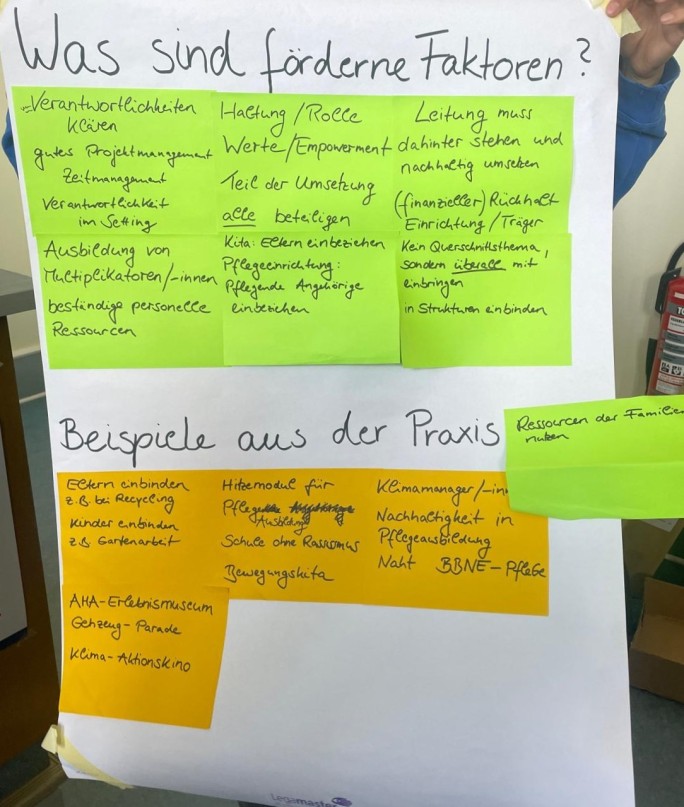 Was sind förderne Faktoren?
Verantwortlichkeiten
klären
gutes Projektmanagement
Zeitmanagement
Verantwortlichkeit
im Setting
Haltung/Rolle
Werte/Empowerment
Teil der Umsetzung
alle beteiligen
Leitung muss
dahinter stehen und
nachhaltig umsetzen
(finanzieller) Rückhalt
Einrichtung/Träger
Ausbildung von
Multiplikatoren/-innen
beständige personelle
Ressourcen
Kita: Eltern einbeziehen
Pflegeeinrichtung:
Pflegende Angehörige
einbeziehen
Kein Querschnittsthema,
sondern überall mit
einbringen
in Strukturen einbinden
Beispiele aus der Praxis
Ressourcen der Familien
nutzen
Eltern einbinden
z.B. bei Recycling
Kinder einbinden
z.B. Gartenarbeit
Hitzemodul für
Pflege
Ausbildung
Schule ohne Rassismus
Bewegungskita
Klimamanager/-inn
Nachhaltigkeit in
Pflegeausbildung
Naht BBNE-Pflege
AHA-Erlebnismuseum
Gehzeug-Parade
Klima-Aktionskino
Legamaster